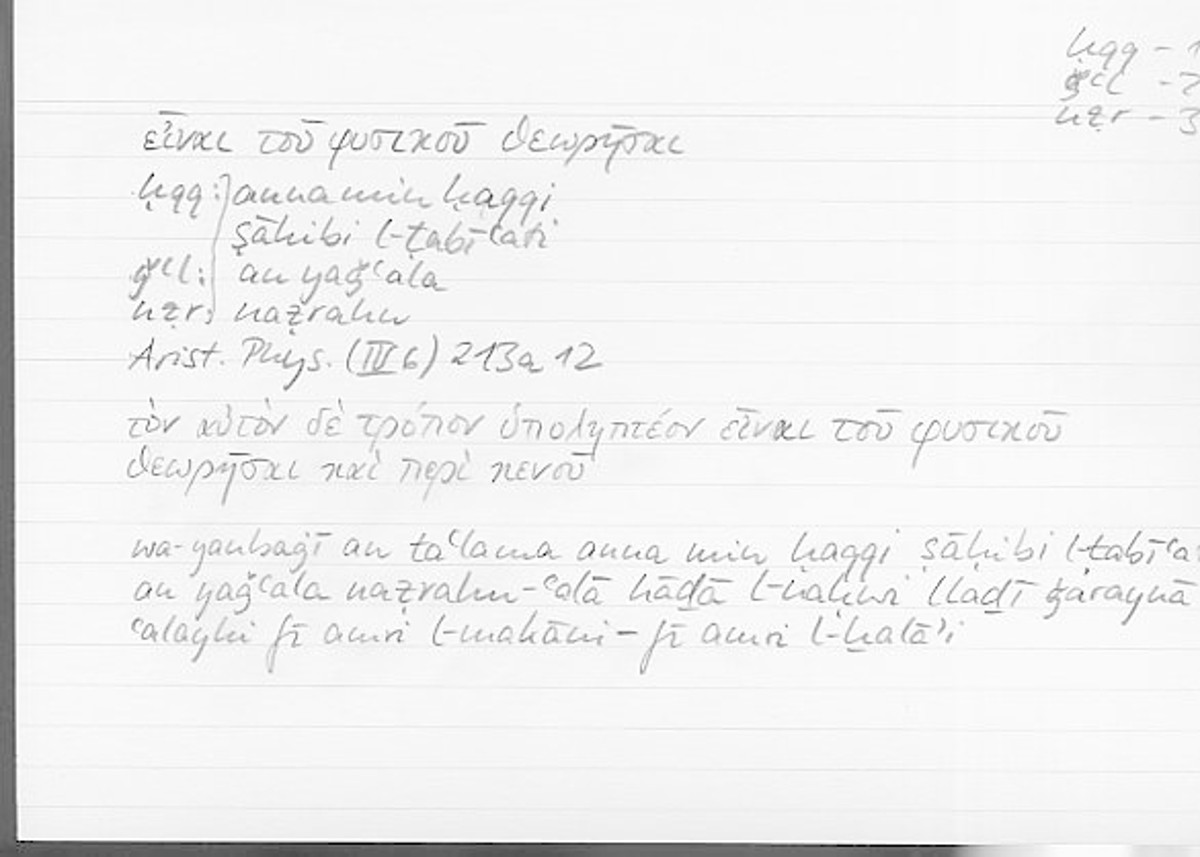 ḥqq – 1
ǧʿl – 2
nẓr – 3
εἶναι τοῦ φυσικοῦ θεωρῆσαι
ḥqq: anna min ḥaqqi
ṣāḥibi l-ṭabīʿati
ǧʿl: an yaǧʿala
nẓr: naẓrahu
Arist. Phys. (IV 6) 213a 12
τὸν αὐτὸν δὲ τρόπον ὑποληπτέον εἶναι τοῦ φυσικοῦ
θεωρῆσαι καὶ περὶ κενοῦ
wa-yanbaġī an taʿlama anna min ḥaqqi ṣāḥibi l-ṭabīʿa
an yaǧʿala naẓrahu – ʿalā hāḏā l-naḥwi llaḏī ǧaraynā
ʿalayhi fī amri l-makāni – fī amri l-ḫalāʾi